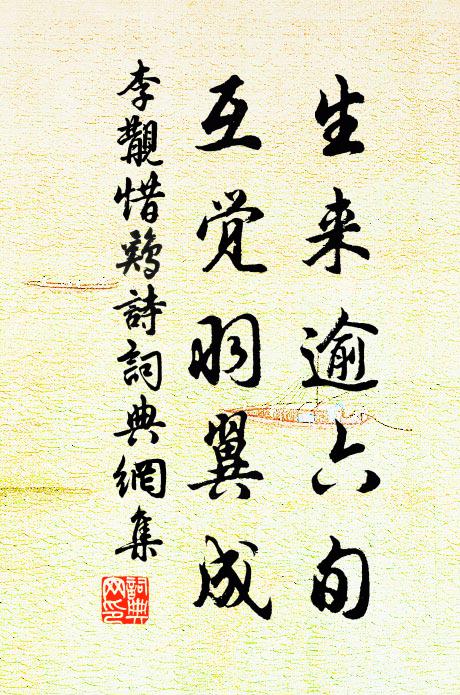 生来逾六旬
互觉羽翼成
李觀惜鷄詩詞典網集
詞典
网印